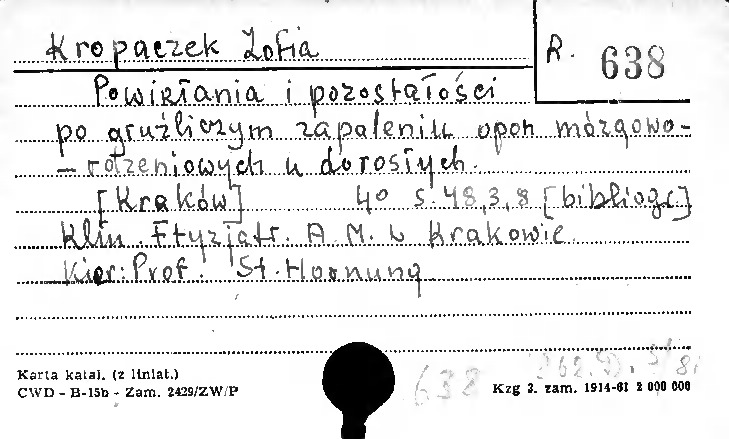 Kropaczek Zofia
R. 638
Powikłania i pozostałości
po gruźliczym zapaleniu opon mózgowo-
-rdzeniowych u dorosłych.
[Kraków] 4° s. 48,3,8 [bibliogr]
Klin. Ftyzjatr. A.M. w Krakowie
Kier: Prof. St. Hornung
Karta katal. (z liniat.)
CWD - B-15b - Zam. 2429/ZW/P
638
Kzg 3. zam. 1914-61 2 000 000